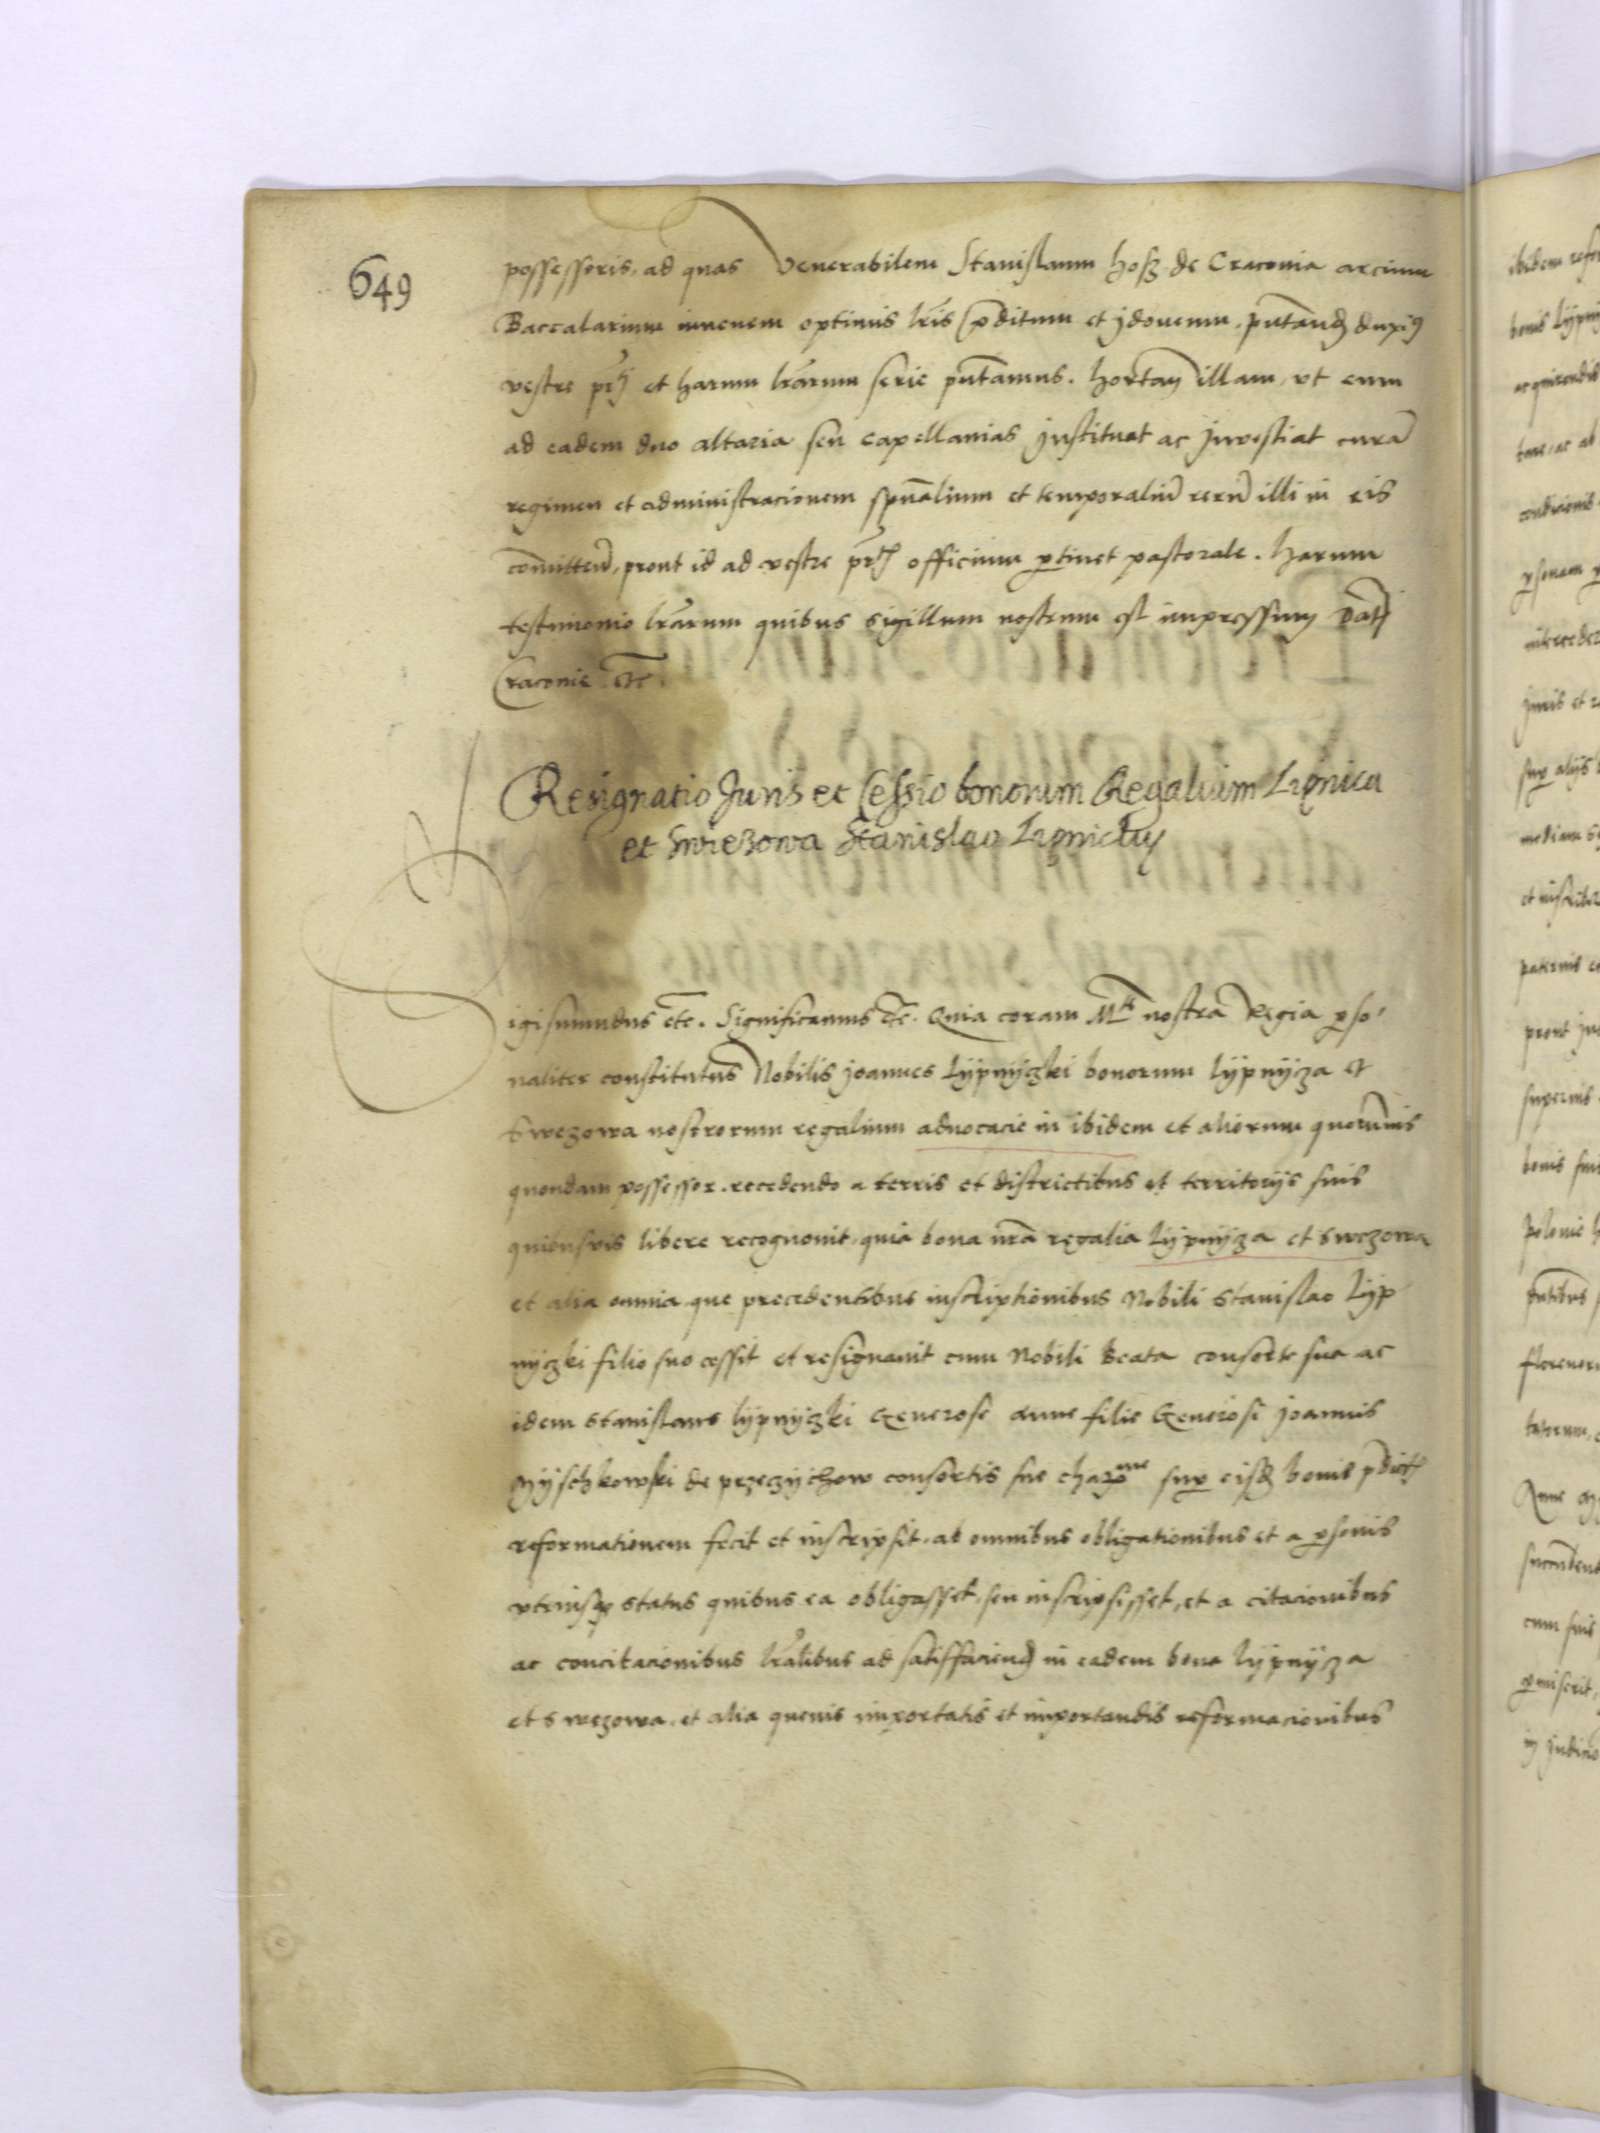 649
possessoris, ad quas Venerabilem Stanislaum Hosz de Cracovia arcium
Baccalarium iuvenem optimis lr̃is p̃ditum et ydoneum, pñtand̃ duxim9
vestre pt̃j et harum lr̃arum serie pñtamus. Hortam̃ illam, vt eum
ad eadem duo altaria seu capellanias Instituat ac Investiat curã
regimen et administracionem spũalium et temporaliũ rerũ illi in eis
comitteñ, prout id ad vestre pt̃is officium ptinet pastorale. Harum
testimonio lr̃arum quibus sigillum nostrum est impressum Dat̃
Cracovie etc̃.
Resignatio Juris et Cessio bonorum Regalium Lipnica
et Swiezowa Stanislao Lipniczky
Sigismundus etc̃. Significamus etc̃. Quia coram Mte nostra Regia p̱so-
naliter constitutus Nobilis Joannes Lÿpnÿczki bonorum Lÿpnÿcza et
Swezowa nostrorum regalium advocacie in ibidem et aliorum quorũvis
quondam possessor. recedendo a terris et districtibus et territorijs suis
quibusvis libere recognovit, quia bona nr̃a regalia Lÿpnÿcza et Swezowa
et alia omnia, que precedentibus inscriptionibus Nobili Stanislao Lÿp
nÿczki filio suo cessit et resignavit cum Nobili Beata consorte sua ac
idem Stanislaus Lÿpnÿczki Generose Anne filie Generosi Joannis
Mÿschkowski de przeczÿchow consortis sue charme sup̱ eisd̃ bonis p̃dict̃
reformationem fecit et inscripsit, ab omnibus obligationibus et a p̱sonis
vtriusq̃ status quibus ea obligasset, seu inscripsisset, et a citacionibus
ac concitacionibus lr̃alibus ad satisfaciend̃ in eadem bona Lÿpnÿcza
et Swezowa, et alia quevis importatis et importandis reformacionibus